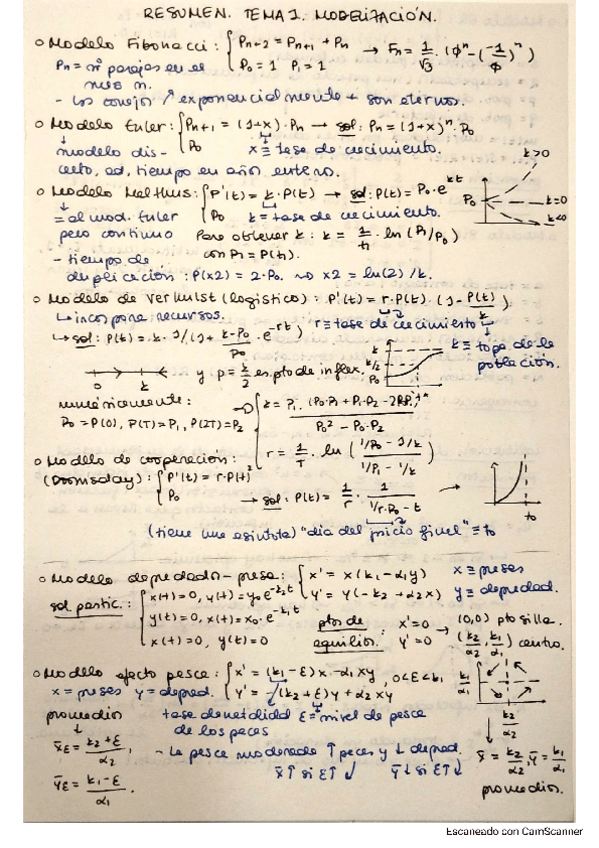 RESUMEN. TEMA 1. MODELIZACIÓN.
○ Modelo Fibonacci: { Pn+2 = Pn+1 + Pn → Fn = 1/√3 · (ϕⁿ - (-1/ϕ)ⁿ)
P0 = 1 P1 = 1
Pn = nº parejas en el
mes n.
- los conejos ↗ exponencialmente + son eternos.
○ Modelo Euler: { Pn+1 = (1+x) · Pn → sol: Pn = (1+x)ⁿ · P0
P0 x ≡ tasa de crecimiento.
↓ modelo dis-
creto, ed, tiempo en años enteros.
○ Modelo Malthus: { P'(t) = k · P(t) → sol: P(t) = P0 · e^kt
P0 k = tasa de crecimiento.
↓ = al mod. Euler
pero continuo
Para obtener k: k = 1/t1 · ln (P1/P0)
con P1 = P(t1).
- tiempo de
duplicación: P(x2) = 2·P0. ⇝ x2 = ln(2)/k.
k>0
P0
k=0
k<0
○ Modelo de Verhulst (logístico): P'(t) = r·P(t) · (1 - P(t)/k)
↳ incorpora recursos. r ≡ tasa de crecimiento
↳ sol: P(t) = k · 1/(1 + k-P0/P0 · e^-rt)
k ≡ tope de la
población.
0 k y: p = k/2 es pto de inflex.
k
k/2
P0
numéricamente:
P0 = P(0), P(T) = P1, P(2T) = P2
{ k = P1 ·
P0² - P0·P2
r = 1/T · ln ( 1/P0 - 1/k / 1/P1 - 1/k )
○ Modelo de cooperación:
(Doomsday): { P'(t) = r·P(t)²
P0 → sol: P(t) = 1/r · 1/(1/r·P0 - t) →
t0
(tiene una asíntota) "día del juicio final" ≡ t0
○ Modelo depredador-presa: { x' = x(k1 - α1y) x ≡ presas
y' = y(-k2 + α2x) y ≡ depred.
sol partic.: { x(t) = 0, y(t) = y0 e^-k2t
y(t) = 0, x(t) = x0 · e^-k1t
x(t) = 0, y(t) = 0
ptos de
equilios.: x' = 0 y' = 0 → (0,0) pto silla.
(k2/α2, k1/α1) centro.
○ Modelo efecto pesca: { x' = (k1 - ε)x - α1xy, 0<ε<k1
y' = -(k2 + ε)y + α2xy
x = presas y = depred.
k1/α1
k2/α2
promedios tasa de natalidad ε = nivel de pesca
de los peces
x̄ε = k2 + ε / α2,
ȳε = k1 - ε / α1.
- la pesca moderada ↑ peces y ↓ depred.
x̄↑ si ε↑↓ ȳ↓ si ε↑↓
x̄ = k2/α2, ȳ = k1/α1
promedios.
Escaneado con CamScanner